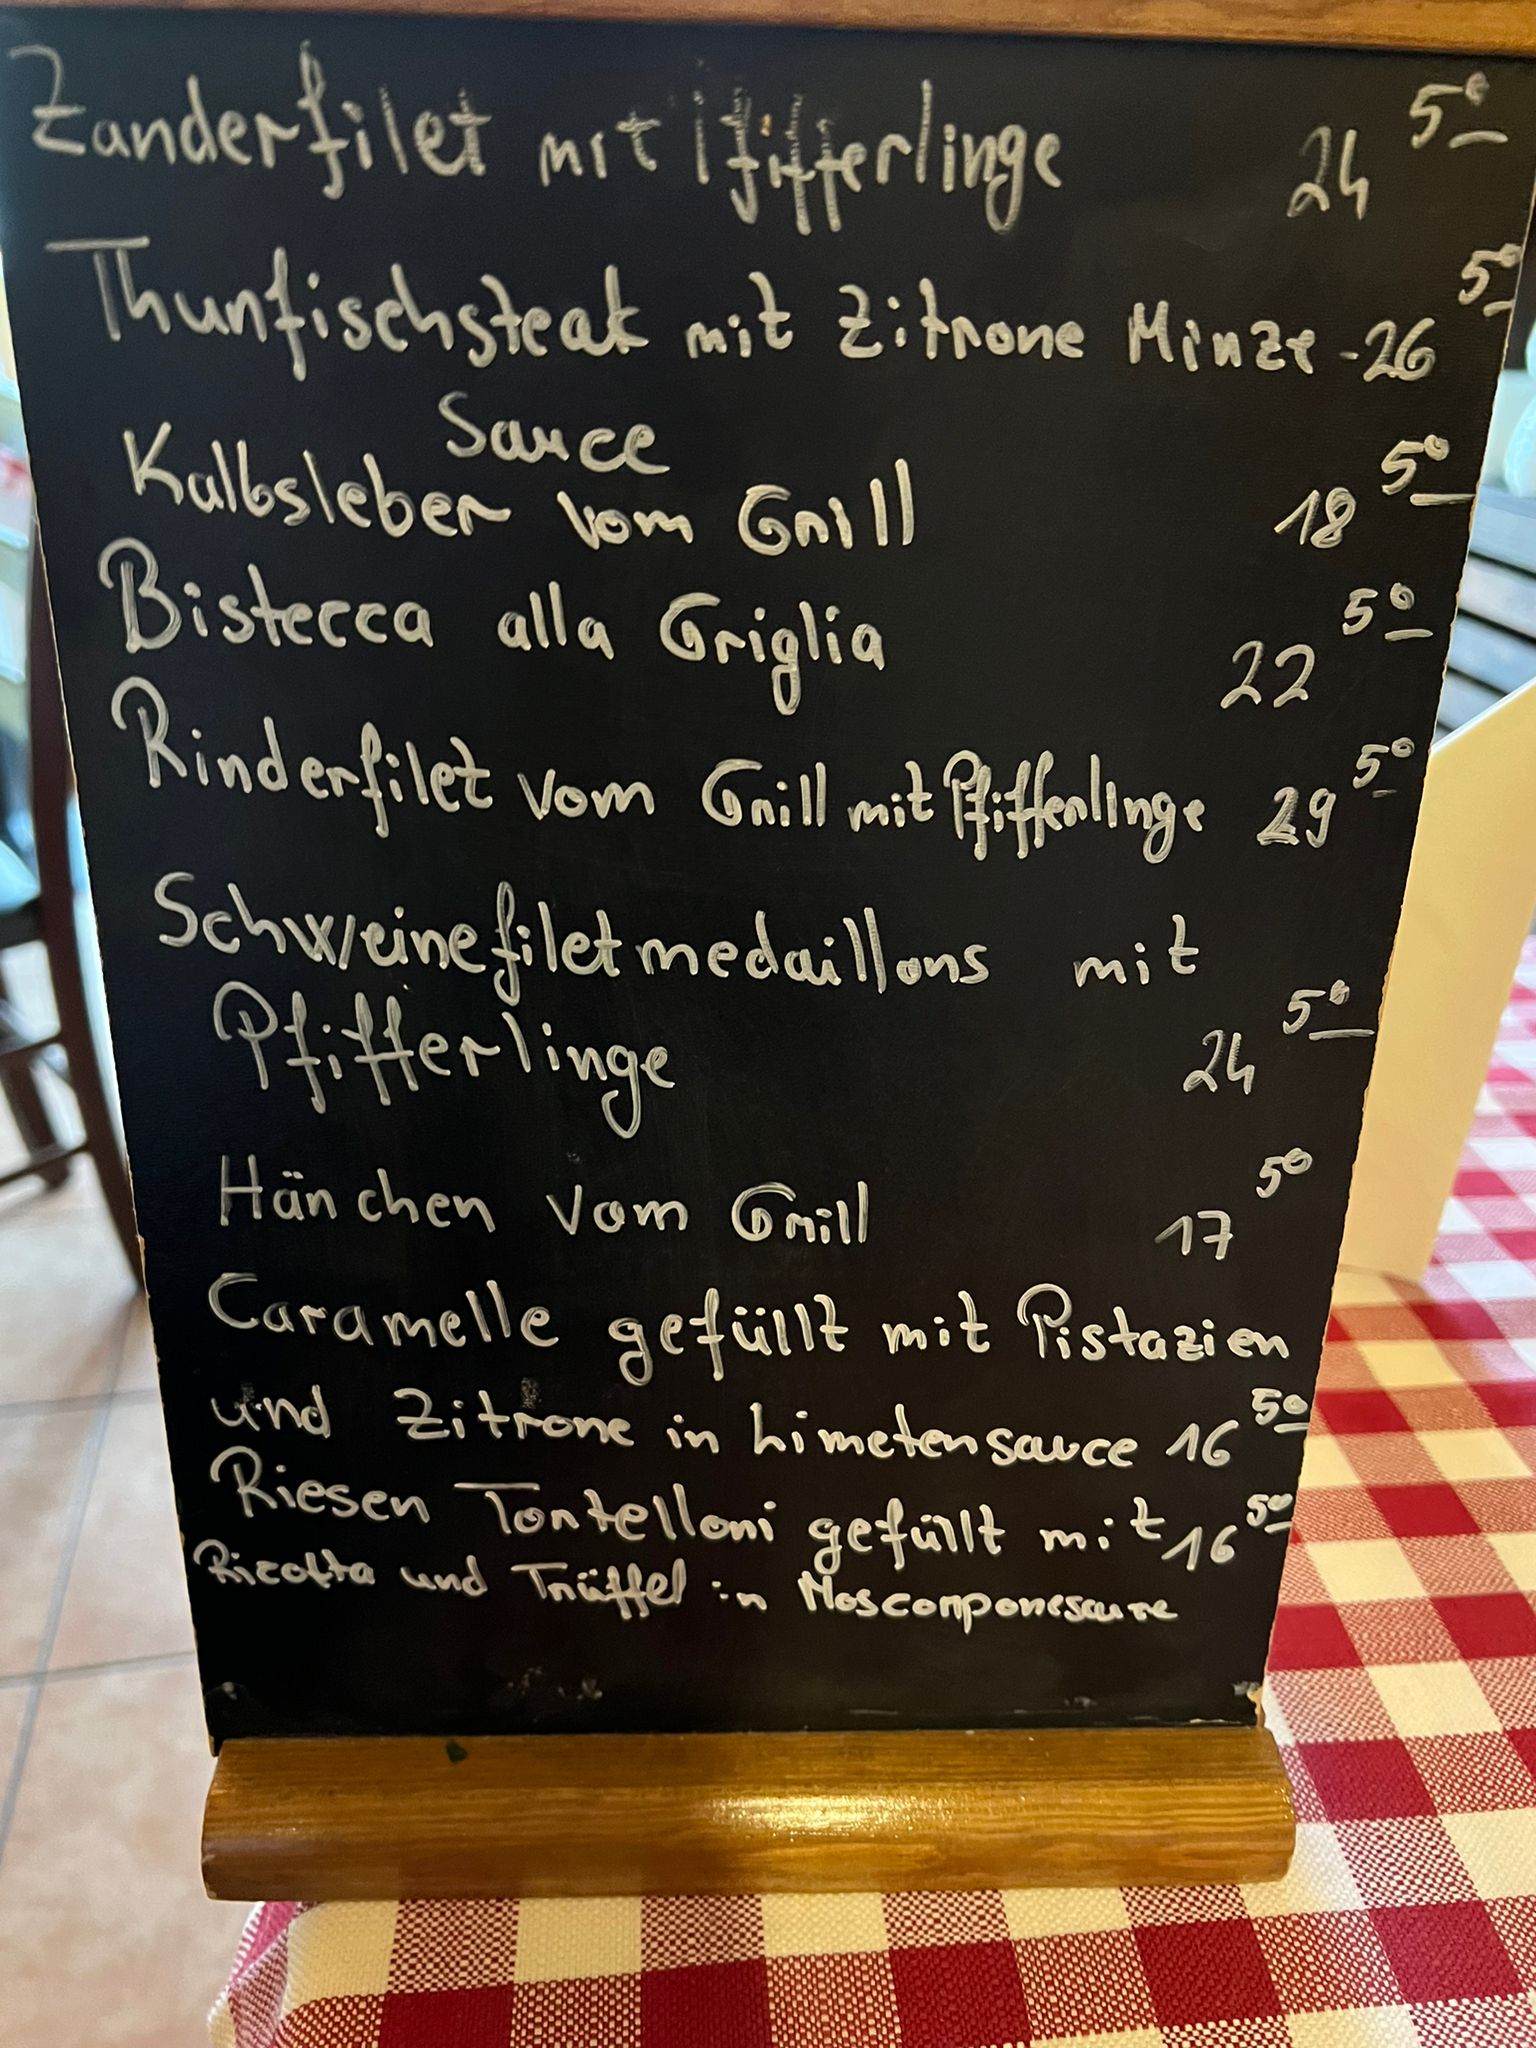 Zanderfilet mit Pfifferlinge 24 50
Thunfischsteak mit Zitrone Minze - 26 50
Sauce
Kalbsleber vom Grill 18 50
Bistecca alla Griglia 22 50
Rinderfilet vom Grill mit Pfifferlinge 29 50
Schweinefiletmedaillons mit
Pfifferlinge 24 50
Hänchen vom Grill 17 50
Caramelle gefüllt mit Pistazien
und Zitrone in Limetensauce 16 50
Riesen Tortelloni gefüllt mit 16 50
Ricotta und Trüffel in Mascarponesauce